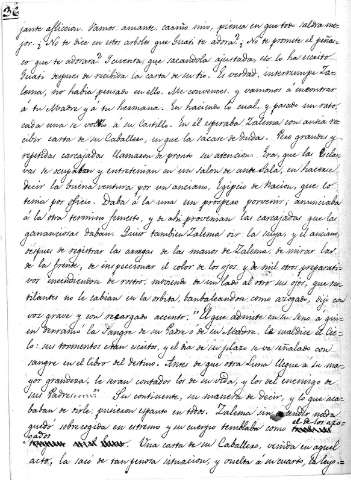 36
jante afliccion. Vamos amante, cariño mio, piensa en que todo saldrá me-
jor. ¿No te dice en estos arboles que Guati te adora? ¿No te promete el peña-
co que te adorará? Juventa, que sacandola ajustada, eso lo ha escrito
Guati despues de recibida la carta de su tio. Es verdad, interrumpe Za-
lema, no habia pensado en ello. Me convences, y vamonos á encontrar
á tu Madre y á tu hermana. En haciendo lo cual, y pasado un rato,
cada una se volvió á su Castillo. En el esperaba Zalema con ansia re-
cibir carta de su Caballero, en que la sacase de duda. Pero grandes y
repetidas carcajadas llamaron de pronto su atencion. Era, que las Escla-
vas se ocupaban y entretenian en un salon de ante Sala, en hacerse
decir la buena ventura por un anciano, Egipcio de Nacion, que lo
tenia por oficio. Daba á la una un prospero porvenir; anunciaba
á la otra termino funesto, y de ahi provenian las carcajadas que las
gananciosas daban. Quiso tambien Zalema oir la suya, y el anciano,
despues de registrar las arrugas de las manos de Zalema, de mirar las
de la frente, de inspeccionar el color de los ojos, y de mil otros preparati-
vos
de rostro, moviendo de un lado al otro sus ojos, que cen-
tellantes no le cabian en la orbita, tambaleandose como azogado, dijo con
voz grave y con reposado accento: "El que admite en su seno á qui-
en derramó la Sangre de su Padre ó de su Madre, le maldice el Cie-
lo: sus tormentos estan escritos, y el dia de su plazo se vé señalado con
sangre en el libro del destino. Antes de que otra Luna llegue á su ma-
yor grandeza, le seran contados los de su vida, y los del enemigo de
sus Padres." Su continente, su manera de decir, y lo que aca-
baban de oirle, pusieron espanto en todos. Zalema sin nada
quedó sobrecogida en estremo y su cuerpo temblaba como el de los azo-
gados. Una carta de su Caballero, venida en aquel
acto, la sacó de tan penosa situacion, y vuelta á su cuarto, la leyó